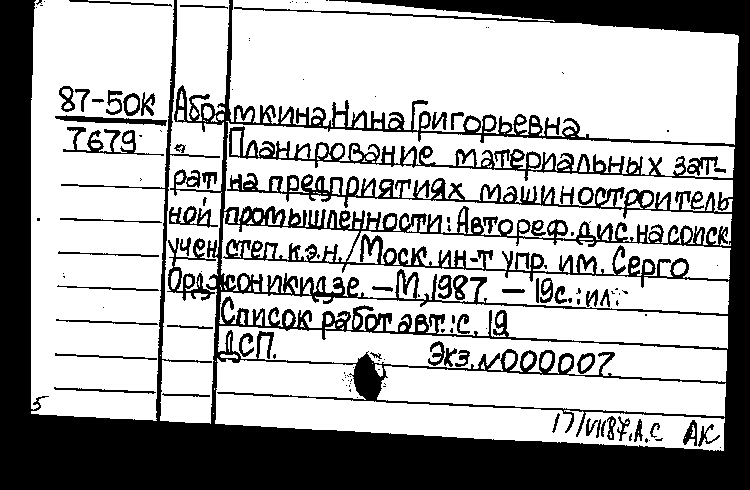 87-50К Абрамкина, Нина Григорьевна.
7679 Планирование материальных зат-
рат на предприятиях машиностроитель
ной промышленности: Автореф. дис. на соиск.
учен. степ. к.э.н. / Моск. ин-т упр. им. Серго
Орджоникидзе. — М., 1987. — 19 с.: ил.
Список работ авт.: с. 19
ДСП. Экз. №000007.
5
17/VII87. А.С АК